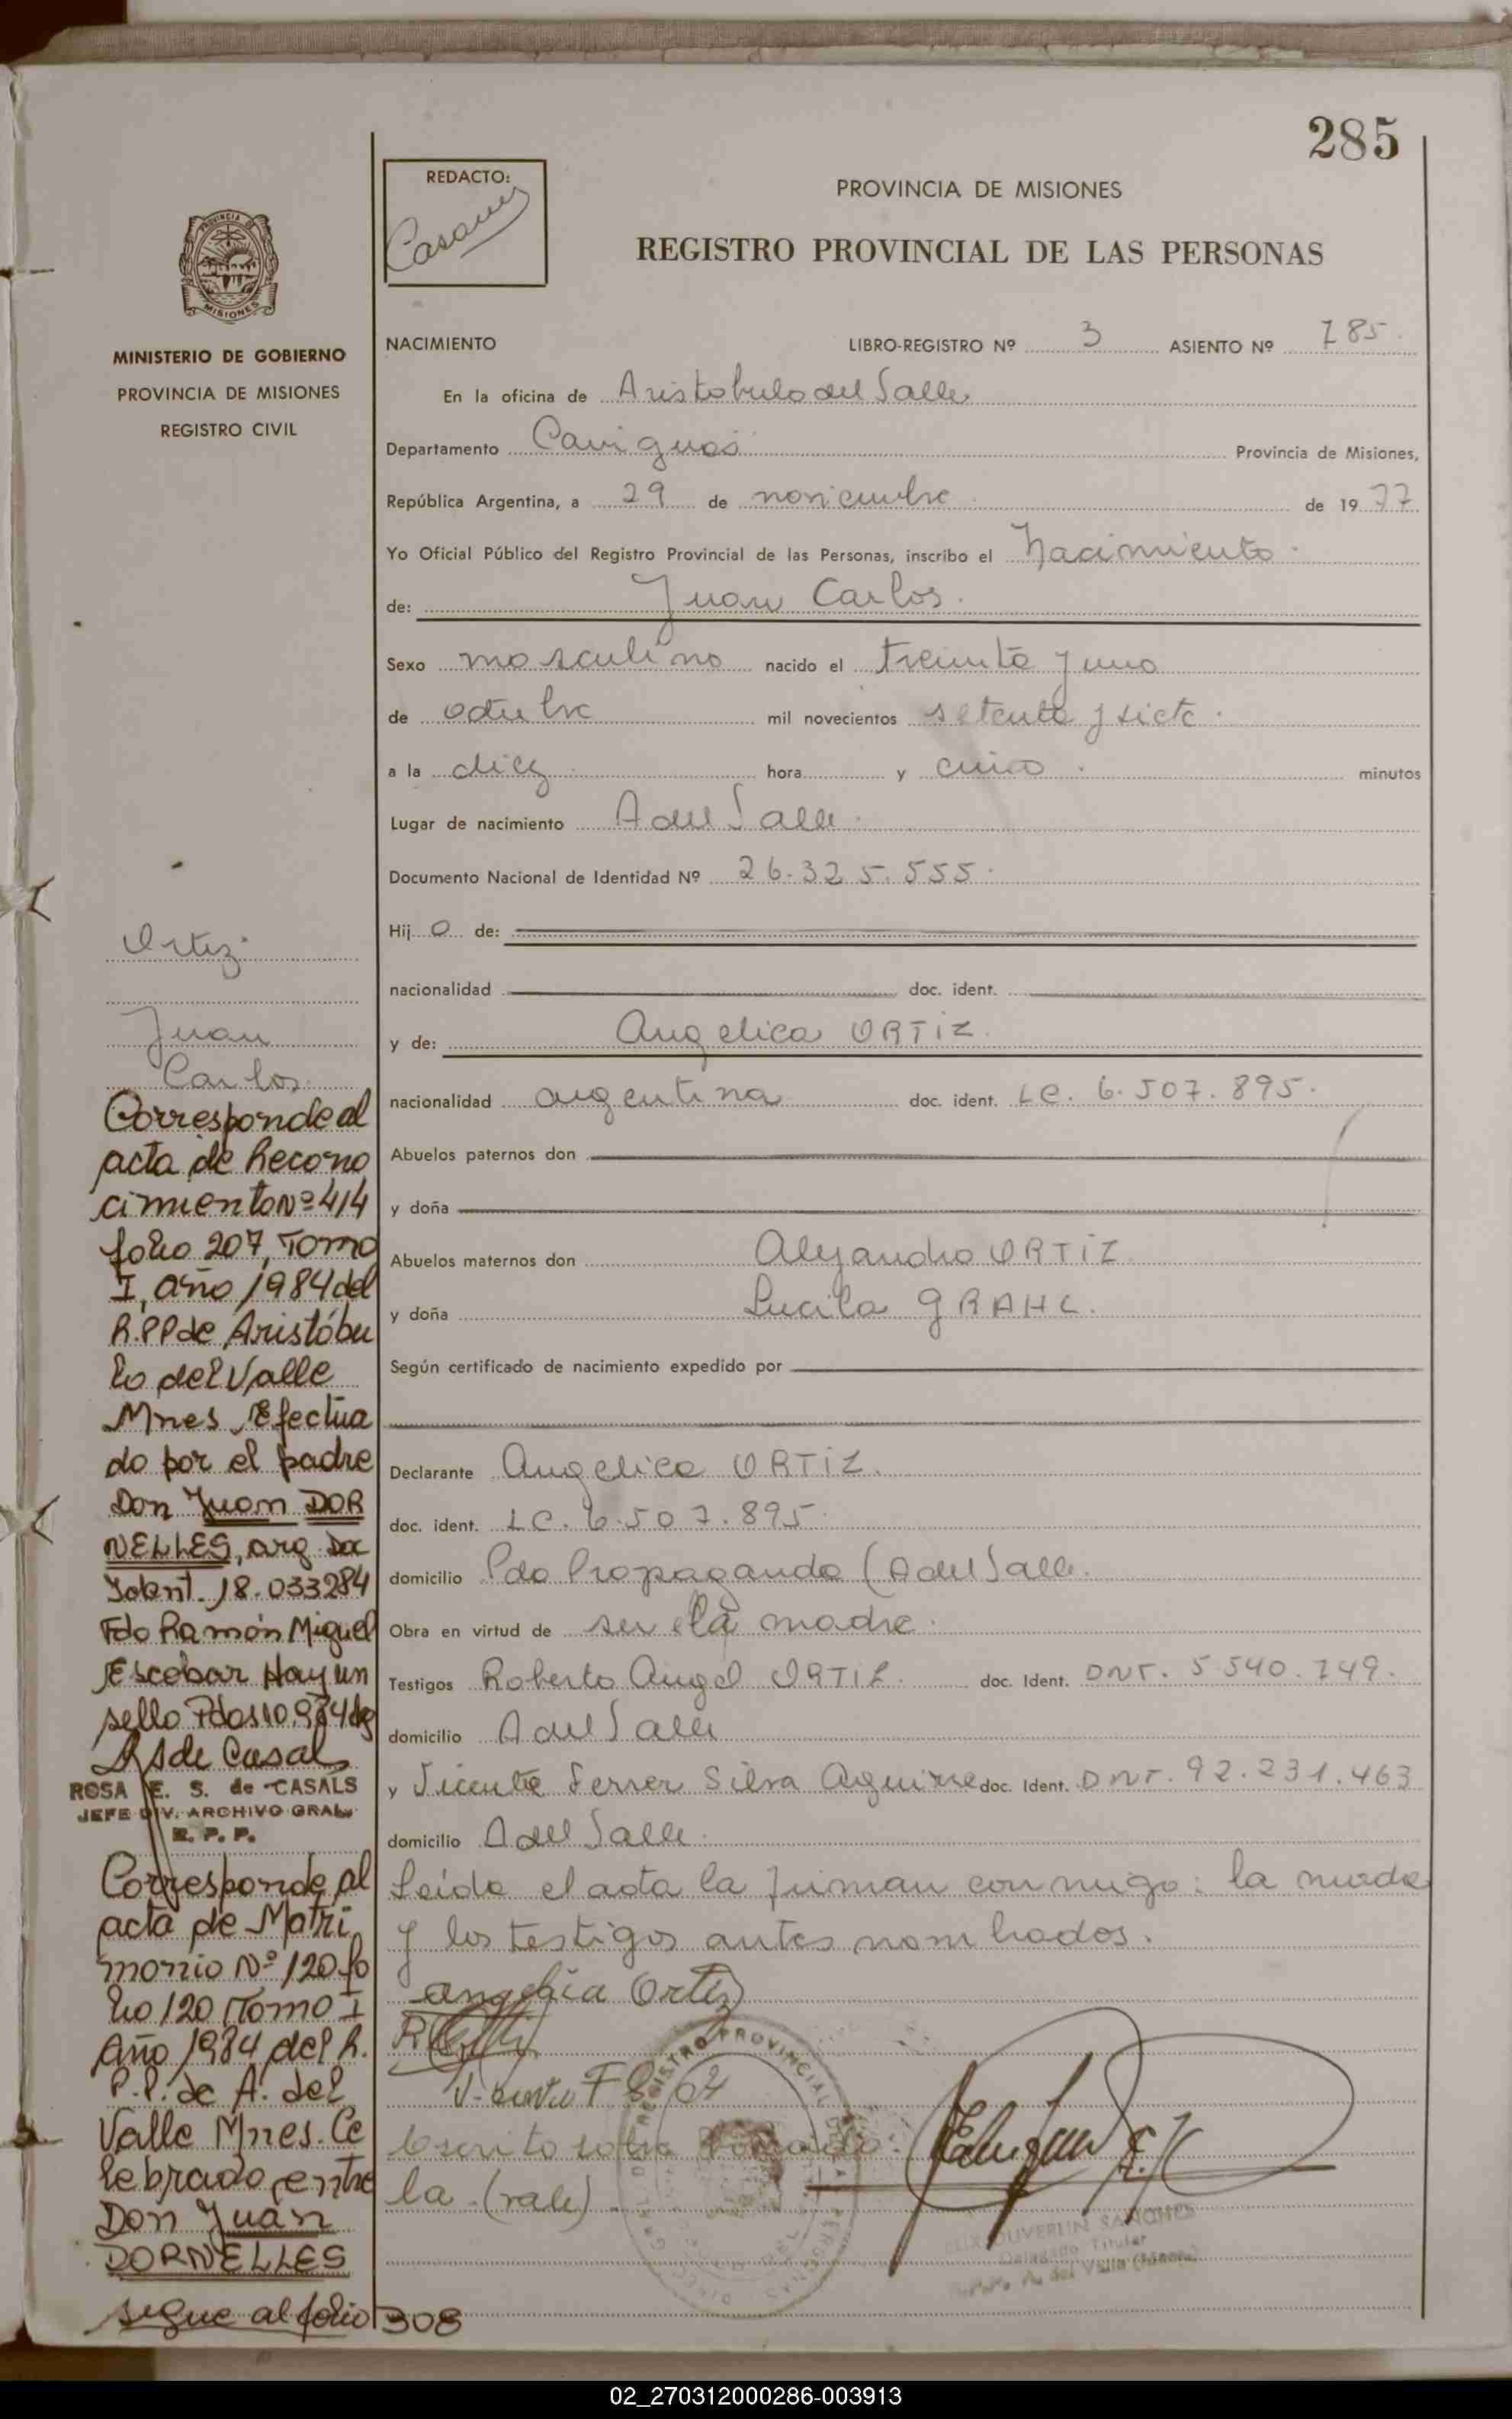 285
REDACTO:
PROVINCIA DE MISIONES
REGISTRO PROVINCIAL DE LAS PERSONAS
MISIONES
MINISTERIO DE GOBIERNO
PROVINCIA DE MISIONES
REGISTRO CIVIL
NACIMIENTO LIBRO-REGISTRO Nº 3 ASIENTO Nº 785.
En la oficina de Aristobulo del Valle
Departamento Cainguas Provincia de Misiones,
República Argentina, a 29 de noviembre de 1977
Yo Oficial Público del Registro Provincial de las Personas, inscribo el Nacimiento.
de: Juan Carlos.
Sexo masculino nacido el treinta y uno
de octubre mil novecientos setenta y siete.
a la diez hora y cinco minutos
Lugar de nacimiento A del Valle.
Documento Nacional de Identidad Nº 26.325.555.
Hij o de:
nacionalidad doc. ident.
y de: Angelica ORTIZ.
nacionalidad argentina doc. ident. LC. 6.507.895.
Abuelos paternos don
y doña
Abuelos maternos don Alejandro ORTIZ
y doña Lucila GRAHL.
Según certificado de nacimiento expedido por
Declarante Angelica ORTIZ.
doc. ident. LC. 6.507.895.
domicilio Pdo Propaganda (A del Valle.
Obra en virtud de ser la madre.
Testigos Roberto Angel ORTIZ. doc. Ident. DNI. 5.540.749.
domicilio A del Valle
y Vicente Ferrer Silva Aguirre doc. Ident. DNI. 92.231.463
domicilio A del Valle.
Leida el acta la firman conmigo: la madre
y los testigos antes nombrados.
Angelica Ortiz
Escrito sobre borrado:
la (vale).
REGISTRO PROVINCIAL
SANCHES
Delegado Titular
R.P.P. A. del Valle (Mnes.)
Ortiz.
Juan
Carlos.
Corresponde al
acta de Recono
cimiento Nº 414
folio 207, Tomo
I, año 1984 del
R.P.P de Aristóbu
lo del Valle
Mnes, Efectua
do por el padre
Don Juan DOR
NELLES, arg. Doc
Ident. 18.033284
Fdo Ramón Miguel
Escobar Hay un
sello
RS de Casals
ROSA E. S. de CASALS
JEFE DIV. ARCHIVO GRAL.
R. P. P.
Corresponde al
acta de Matri
monio Nº 120 fo
lio 120 Tomo I
Año 1984 del R.
P.P. de A. del
Valle Mnes. Ce
lebrado entre
Don Juan
DORNELLES
sigue al folio 308
02_270312000286-003913